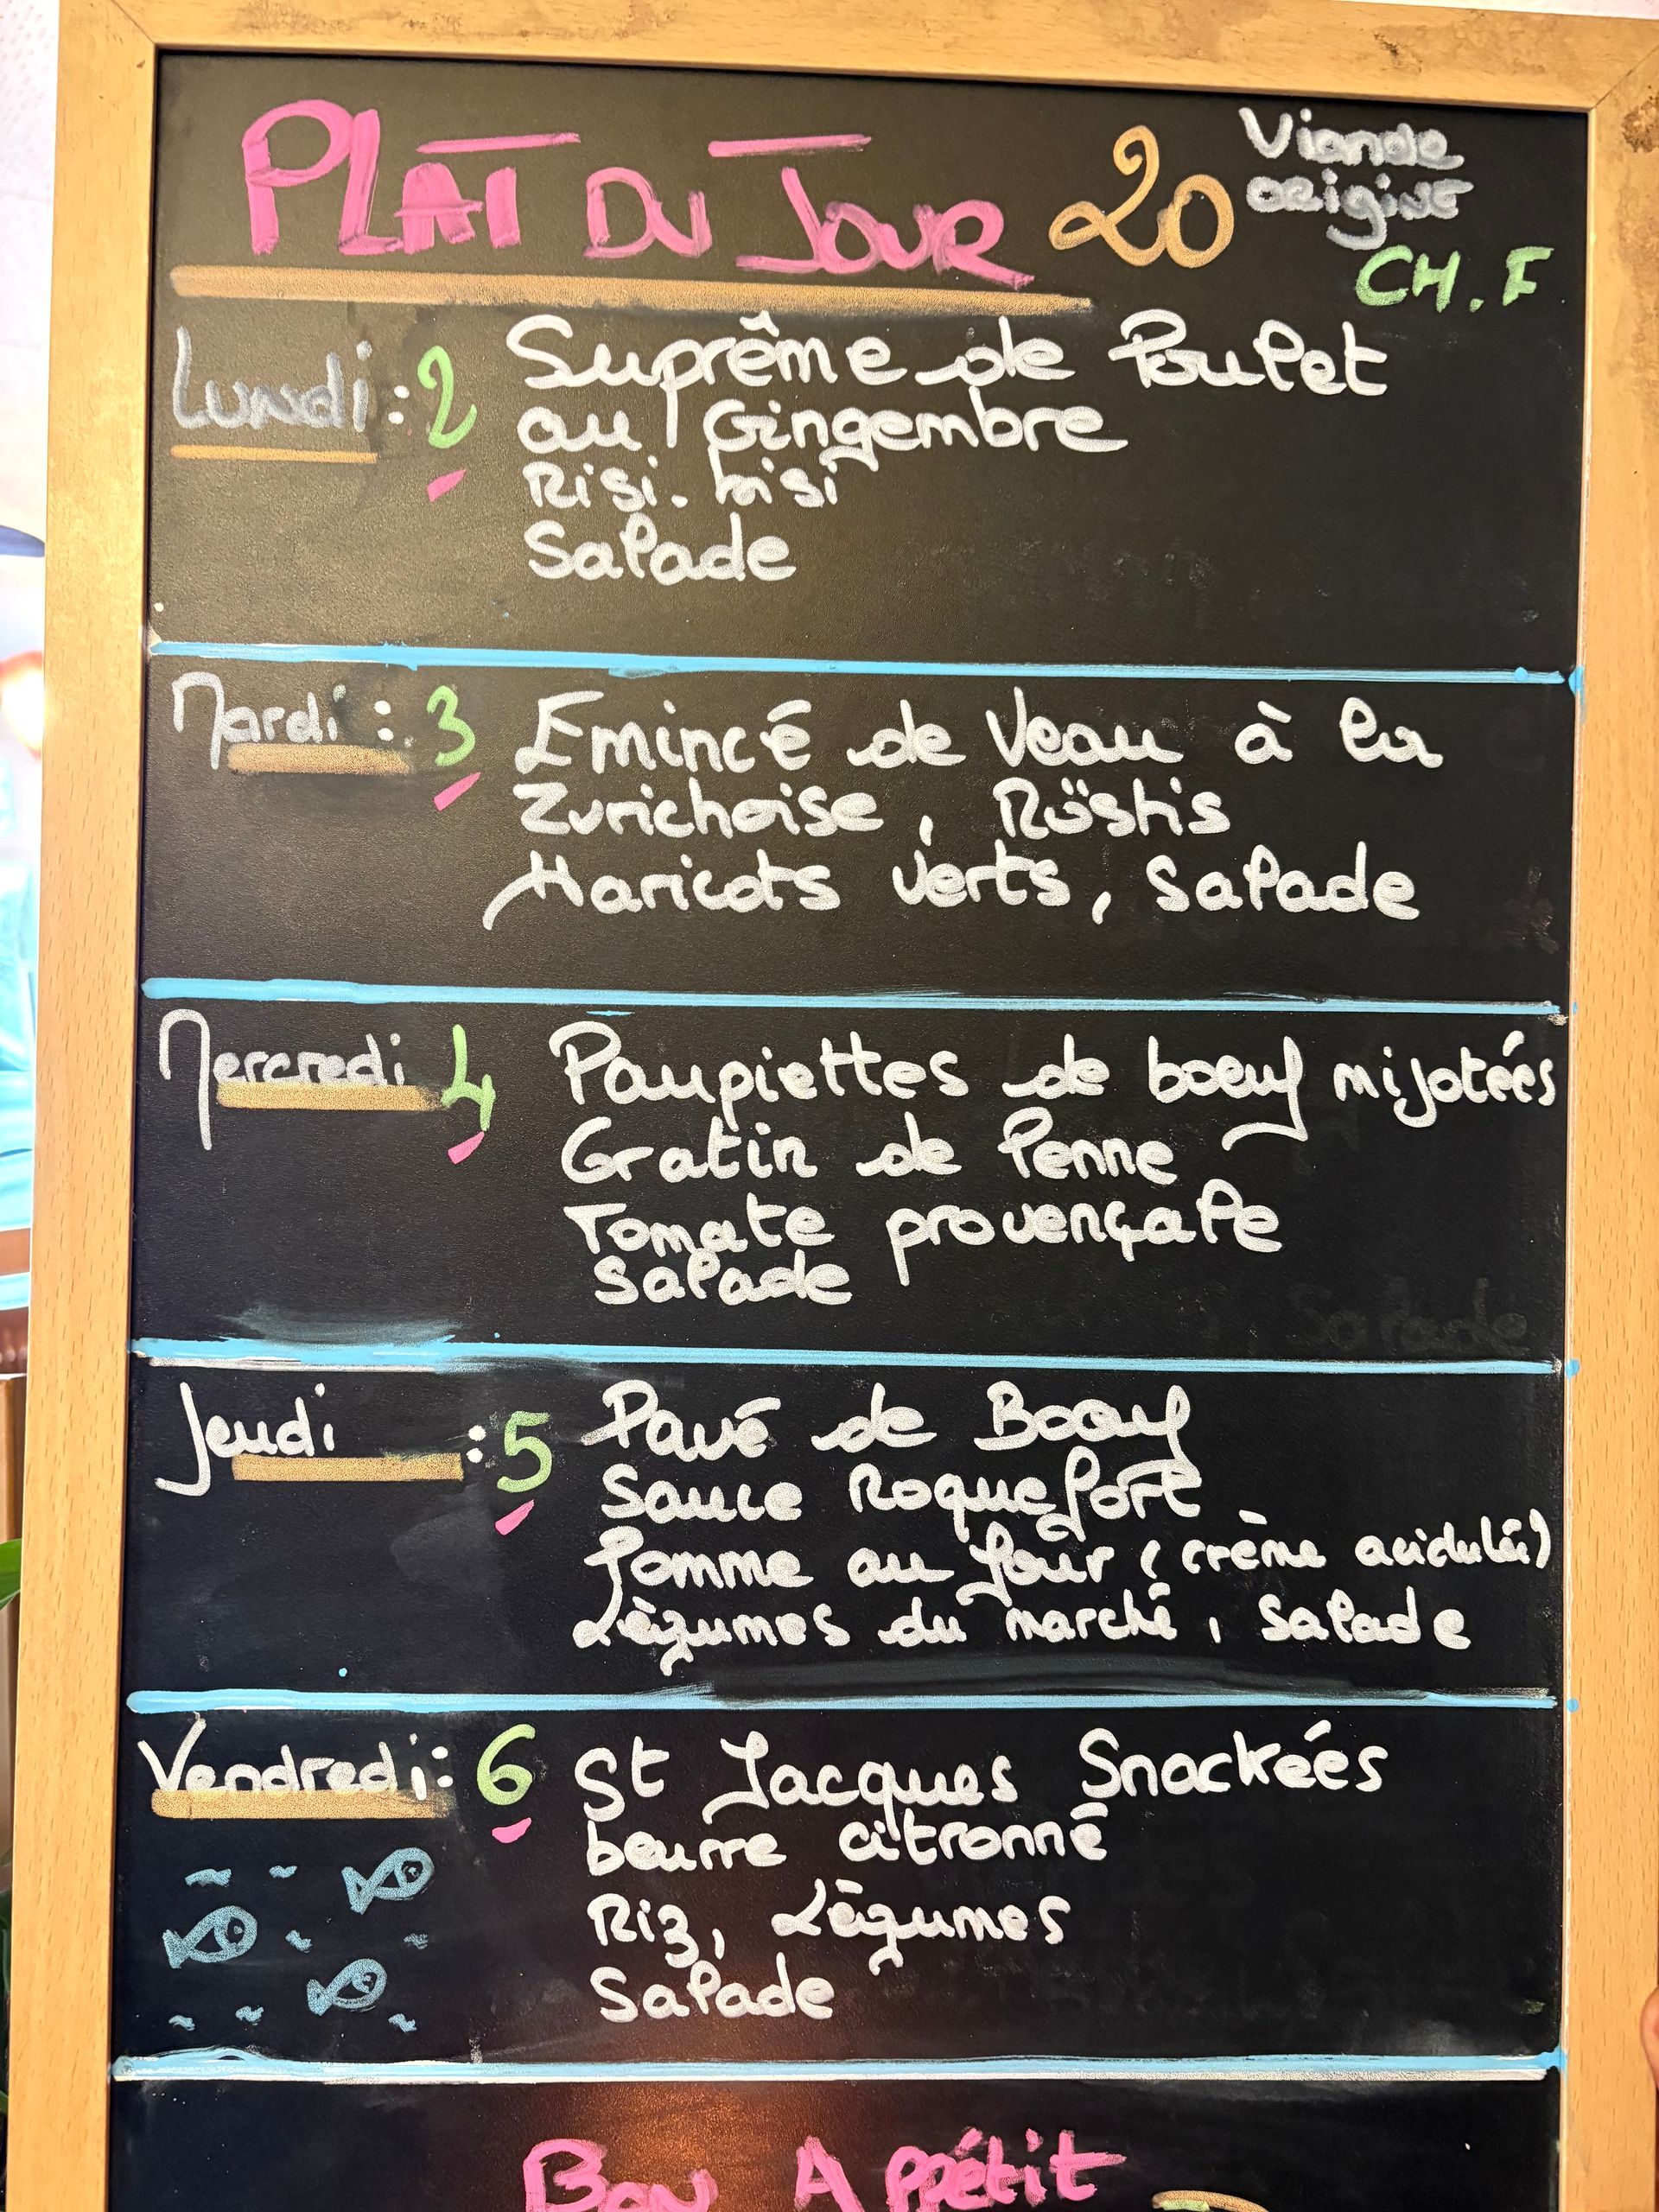 PLAT DU JOUR 20
Viande
origine
CH. F
Lundi : 2 Suprême de Poulet
au Gingembre
Risi. bisi
Salade
Mardi : 3 Emincé de Veau à la
Zurichoise, Röstis
Haricots verts, Salade
Mercredi 4 Paupiettes de boeuf mijotées
Gratin de Penne
Tomate provençale
Salade
Jeudi : 5 Pavé de Boeuf
Sauce Roquefort
Pomme au four (crème acidulée)
Lègumes du marché, Salade
Vendredi : 6 St Jacques Snackées
beurre citronné
Riz, Lègumes
Salade
Bon Appétit